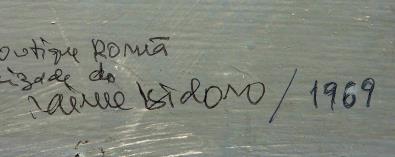 outique Romã
izade do
Jaime Isidoro / 1969